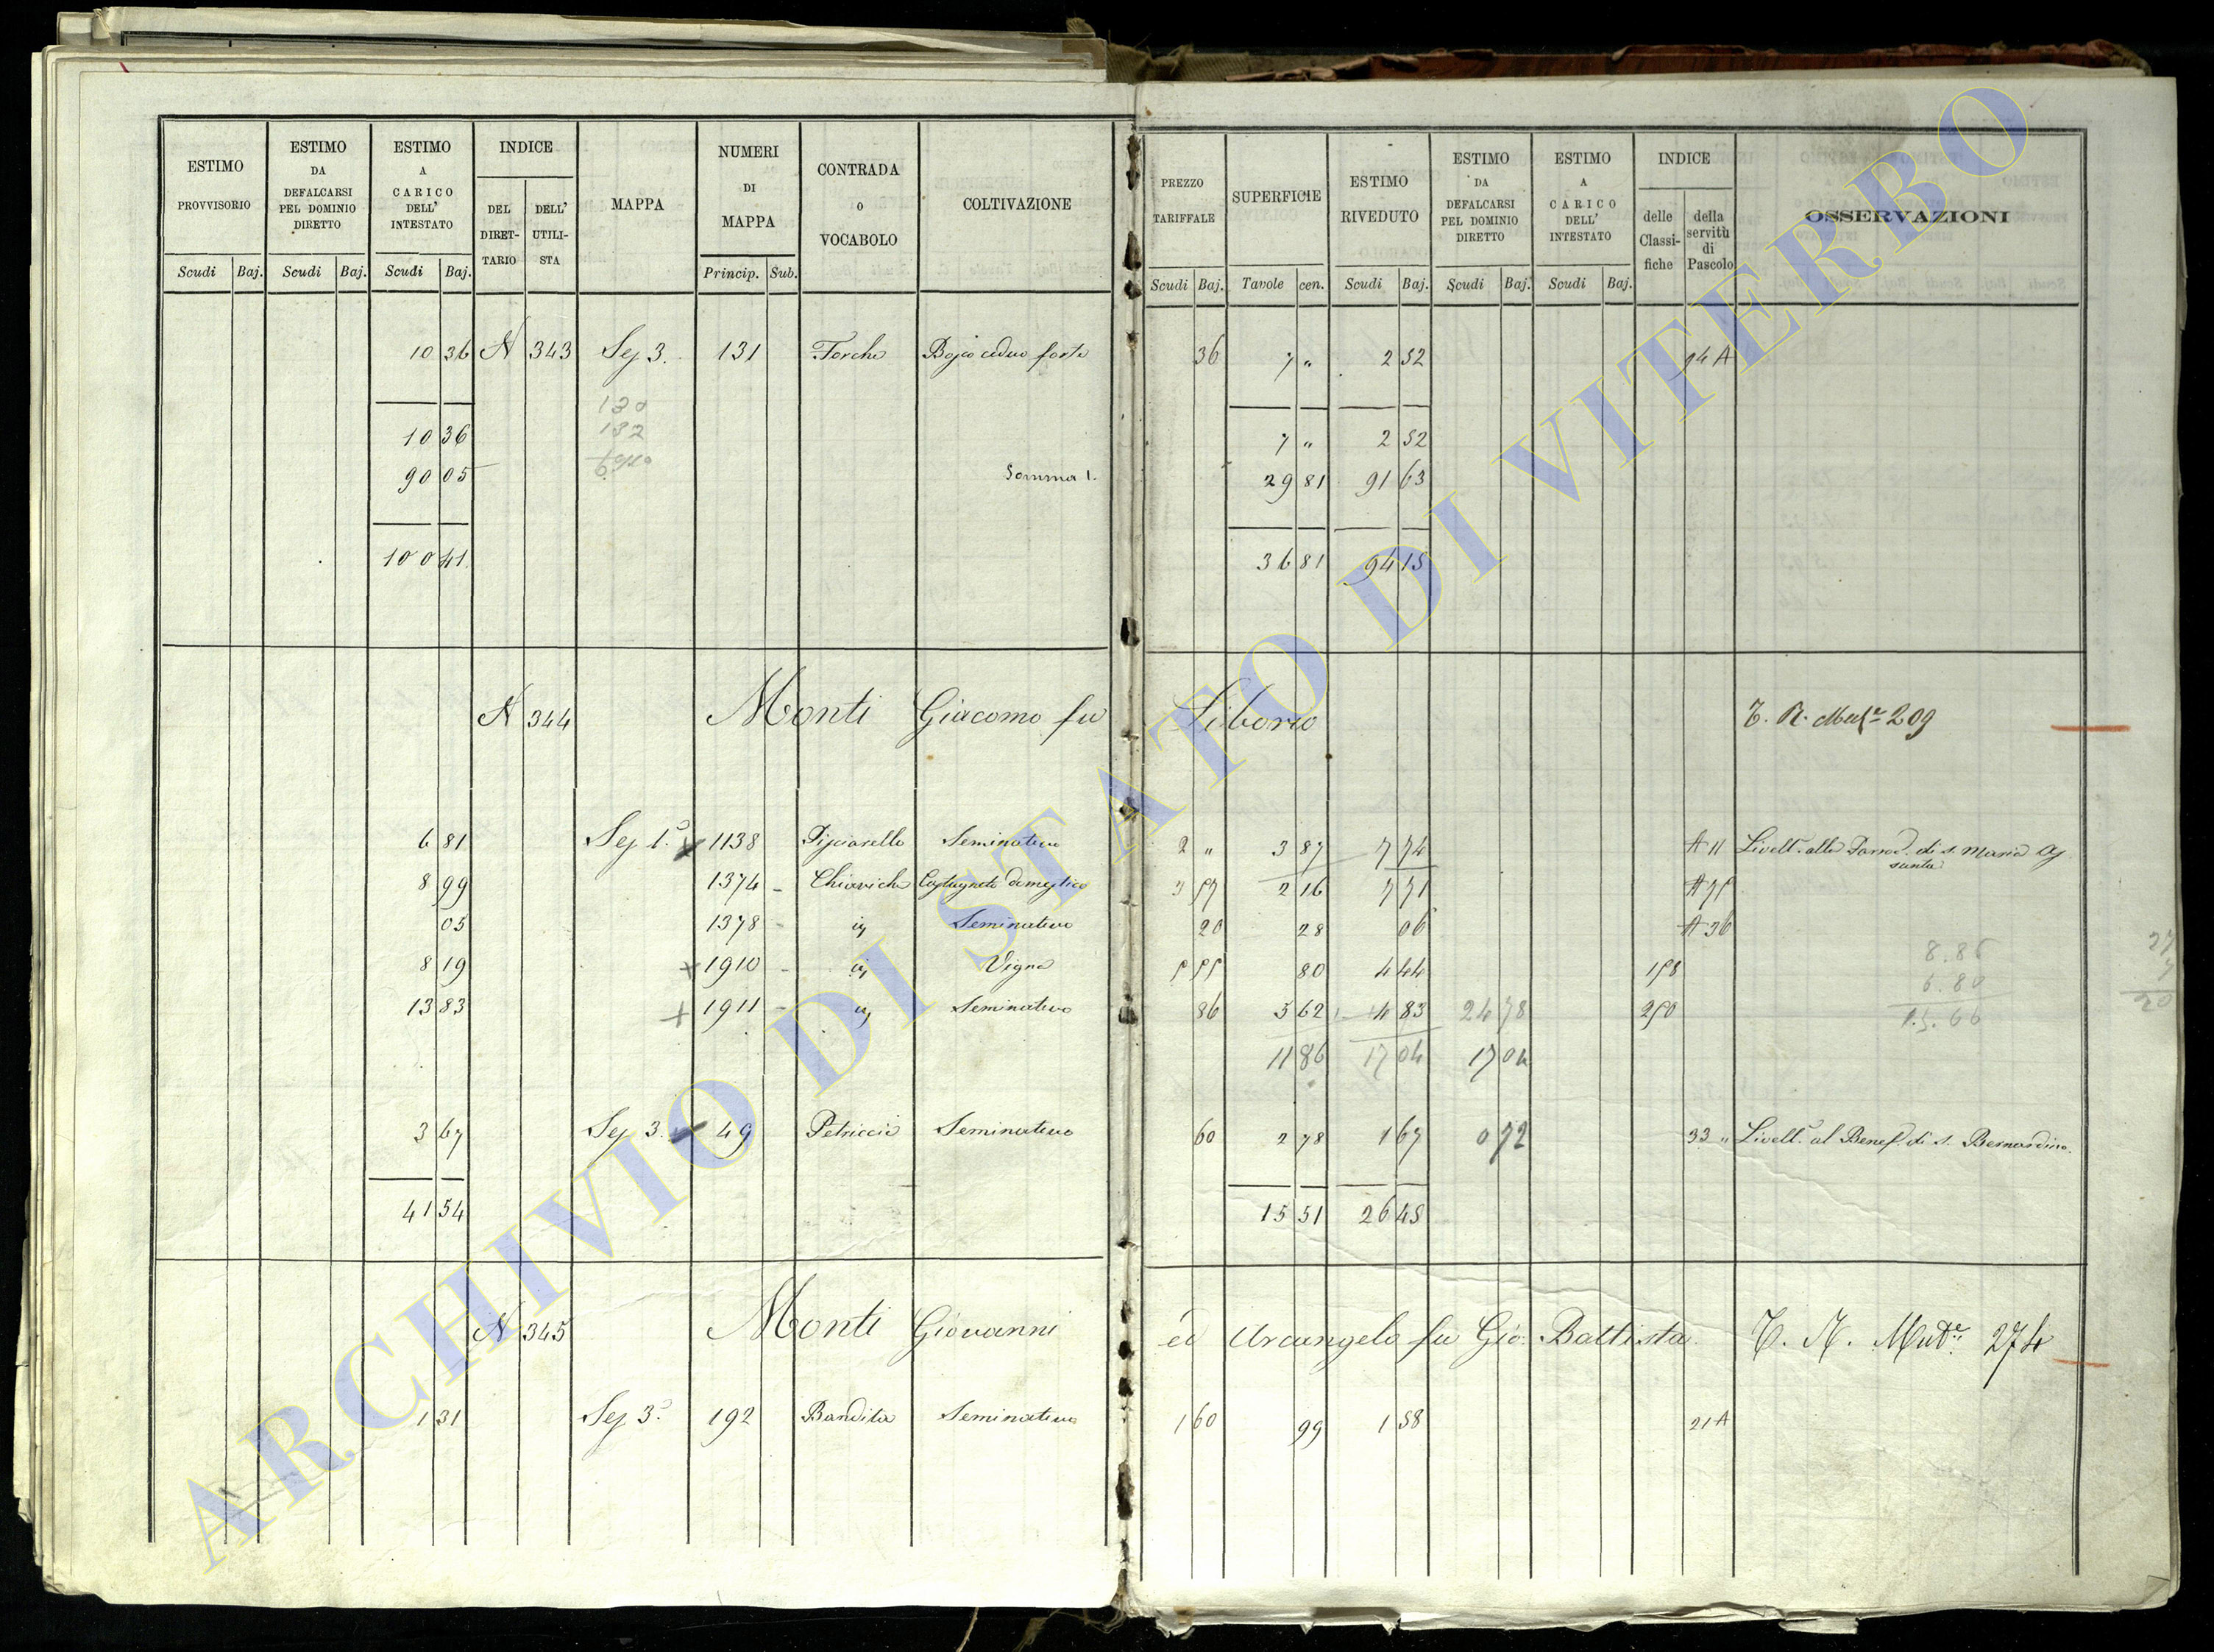 ESTIMO PROVVISORIO ESTIMO DA DEFALCARSI PEL DOMINIO DIRETTO ESTIMO A CARICO DELL' INTESTATO INDICE DEL DIRET-TARIO DELL' UTILI-STA MAPPA NUMERI DI MAPPA CONTRADA O VOCABOLO COLTIVAZIONE PREZZO TARIFFALE SUPERFICIE ESTIMO RIVEDUTO ESTIMO DA DEFALCARSI PEL DOMINIO DIRETTO ESTIMO A CARICO DELL' INTESTATO INDICE delle Classi-fiche della servitù di Pascolo OSSERVAZIONI
Scudi Baj. Scudi Baj. Scudi Baj. Princip. Sub. Scudi Baj. Tavole cen. Scudi Baj. Scudi Baj. Scudi Baj.
10 36 N 343 Sez 3. 131 Forche forte 36 7 " 2 52 94 A
130
10 36 132 7 " 2 52
90 05 Somma 1. 29 81 91 63
100 41 36 81 94 15
N 344 Monti Giacomo fu Liborio 209
6 81 Sez 1. 1138 Pisciarello Seminativo 2 " 3 87 7 74 A 11 Livell. alla di S. Maria As
sunta
8 99 1374 Chiaviche Castagneto domestico 3 57 2 16 7 71 A 75
05 1378 Seminativo 20 28 06 A 36
8.86
8 19 + 1910 Vigna 5 55 80 4 44 158
6.80
13 83 + 1911 Seminativo 86 5 62 4 83 24 78 250
15.66
11 86 17 04 17 04
3 67 Sez 3. 49 Petriccia Seminativo 60 2 78 1 67 0 72 33 " Livell. al Benef. di S. Bernardino.
41 54 15 51 26 45
N 345 Monti Giovanni ed Arcangelo fu Gio. Battista 274
1 31 Sez 3. 192 Bandita Seminativo 1 60 99 1 58 21 A
ARCHIVIO DI STATO DI VITERBO